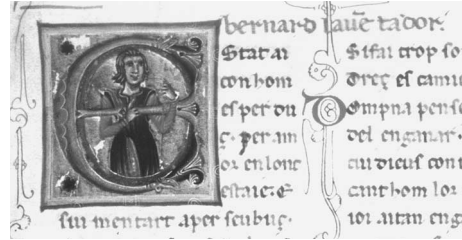 bernard dauē tador.
Stat ai
con hom
es per du
ç. per am
or en lonc
estaie. E
siu mentart aper seubuç.
Sifai trop so
dreg es camu
ompna penso
del enganar.
cui dieus con
cant hom lor